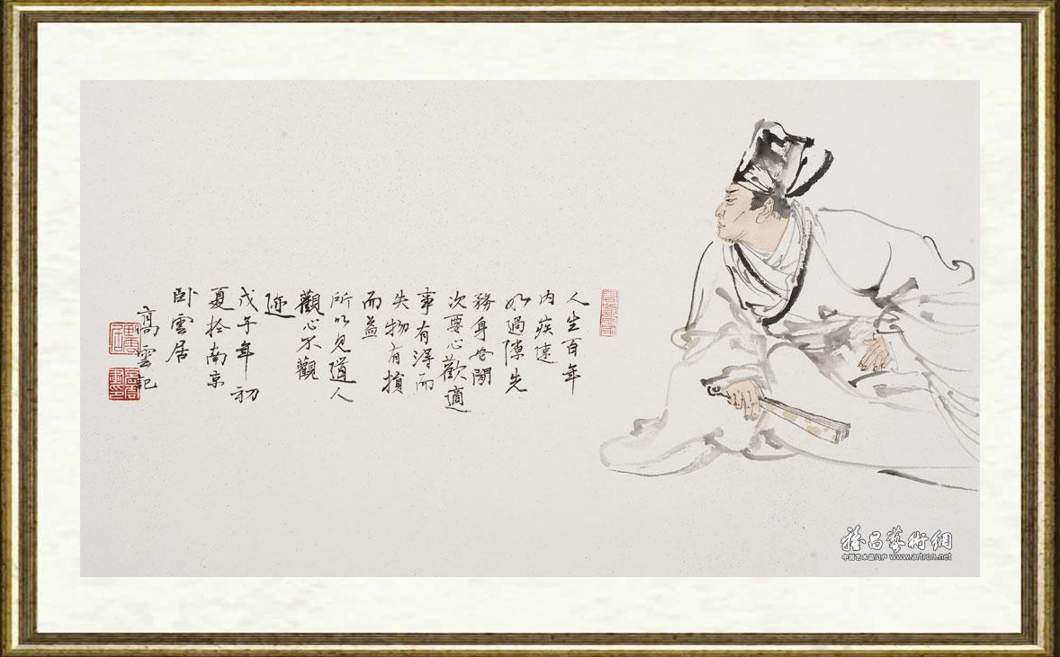 人生百年
内疾速
如過隙先
務身安閑
次要心歡適
事有得而
失物有損
而益
所以見道人
觀心不觀
迹
戊午年初
夏於南京
卧雲居
高雲記
雅昌藝術網
www.artron.net